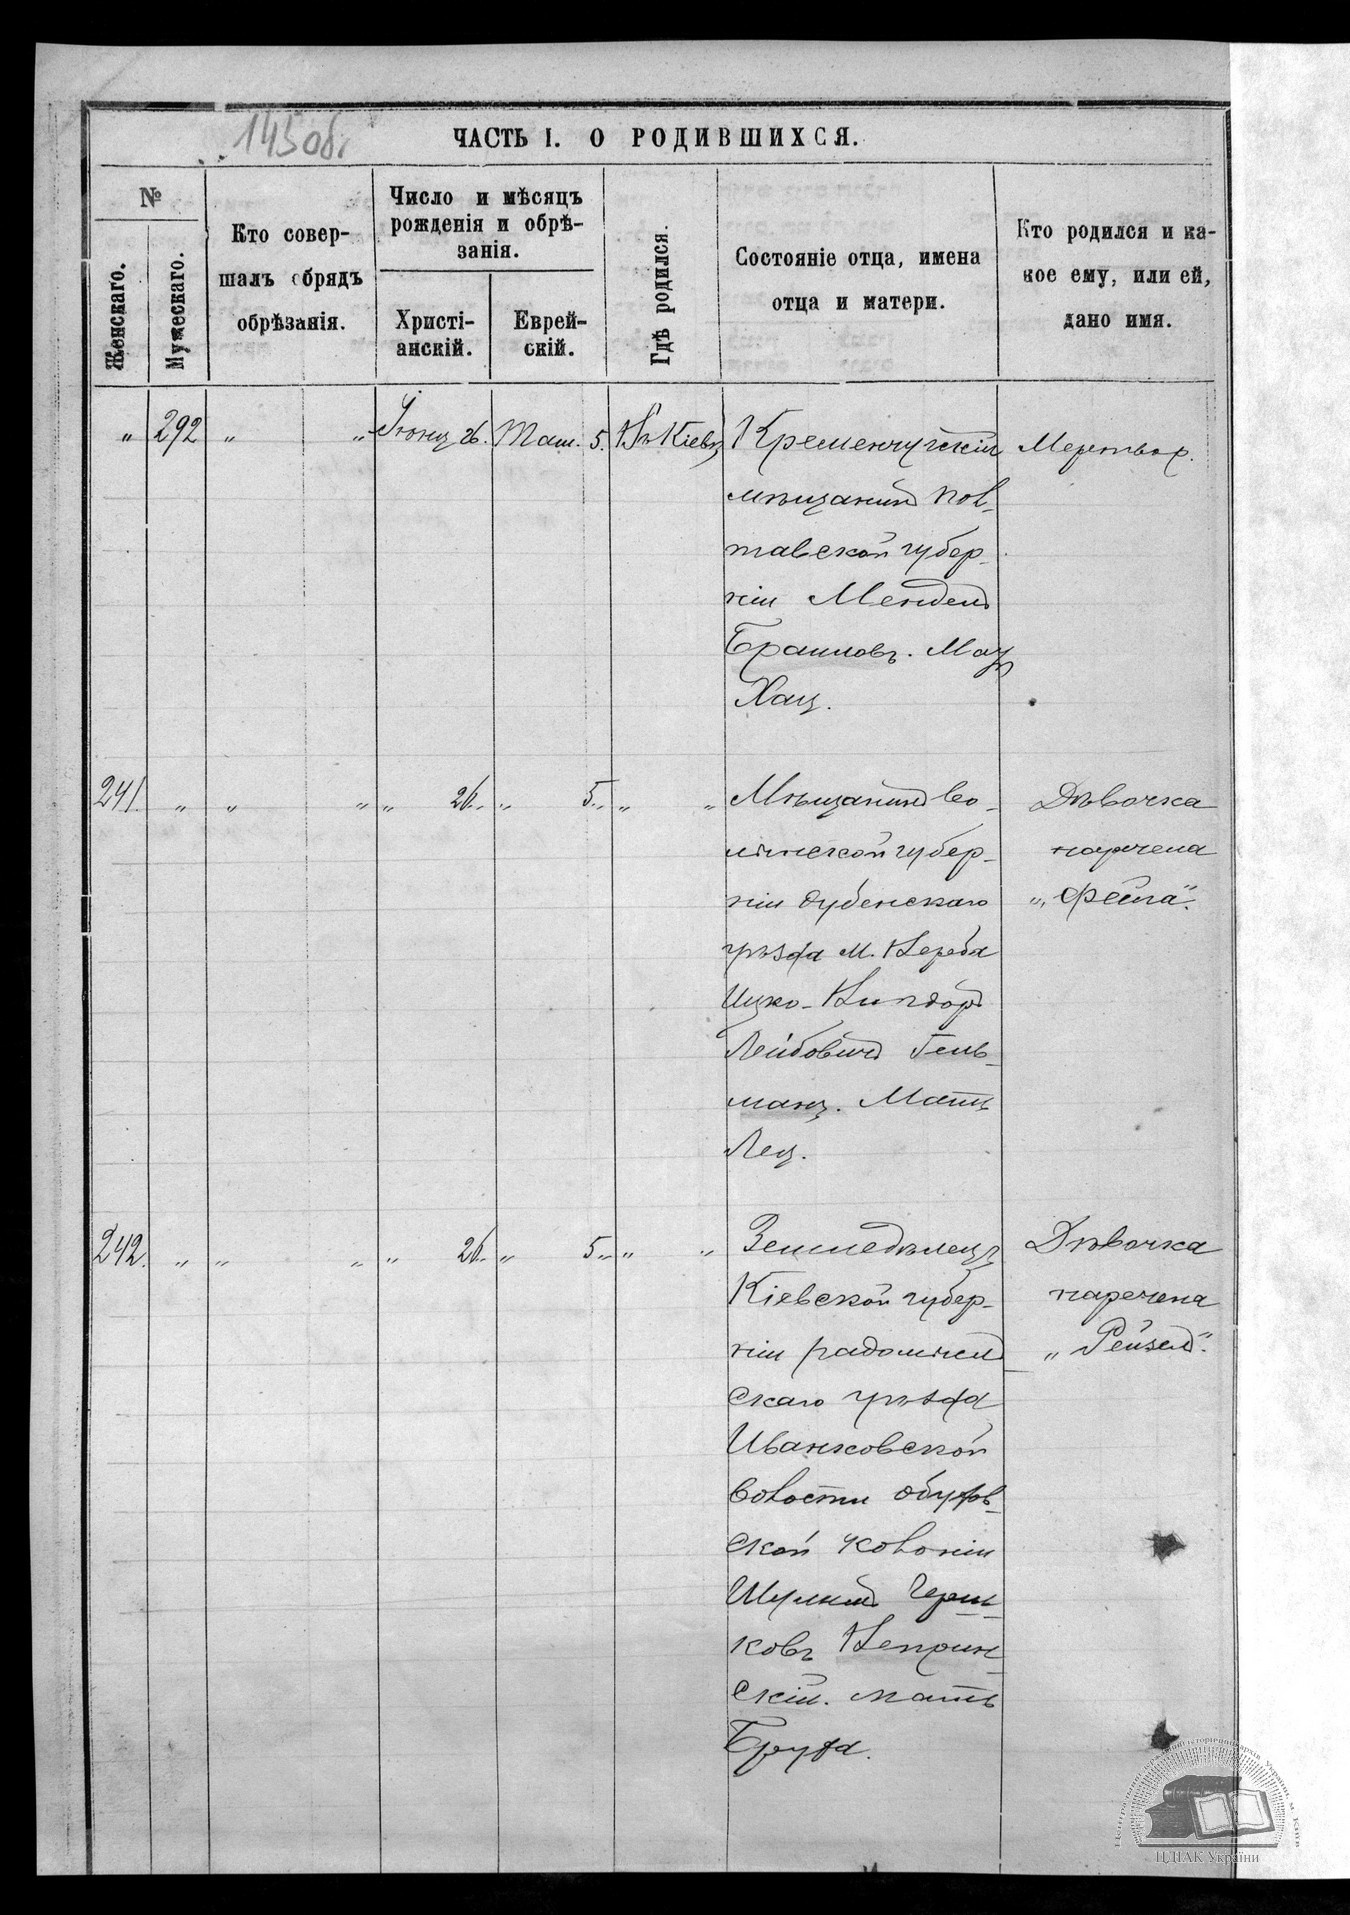 145 об.
ЧАСТЬ I. О РОДИВШИХСЯ.
№
Женскаго.
Мужескаго.
Кто совер-
шалъ обрядъ
обрѣзанія.
Число и мѣсяцъ
рожденія и обрѣ-
занія.
Христі-
анскій.
Еврей-
скій.
Гдѣ родился.
Состояніе отца, имена
отца и матери.
Кто родился и ка-
кое ему, или ей,
дано имя.
„ 292 „ „ Іюня 26. Там. 5. Въ Кіевѣ
Кременчугскій
мѣщанинъ Пол-
тавской губер-
ніи Мендель
Браиловъ. Мать
Хая.
Мертвор.
241. „ „ „ „ 26. „ „ 5. „ „ „
Мѣщанинъ Во-
лынской губер-
ніи Дубенскаго
уѣзда м. Верба
Ицко-
Лейбовичъ Гель-
манъ. Мать
Лея.
Дѣвочка
наречена
„Фейга“.
242. „ „ „ „ 26. „ „ 5. „ „ „
Земледѣлецъ
Кіевской губер-
ніи Радомысль
скаго уѣзда
Иванковской
волости
ской колоніи
Шулимъ Герш-
ковъ
скій. Мать
Груня.
Дѣвочка
наречена
„Рейзель“.
ЦДІАК України